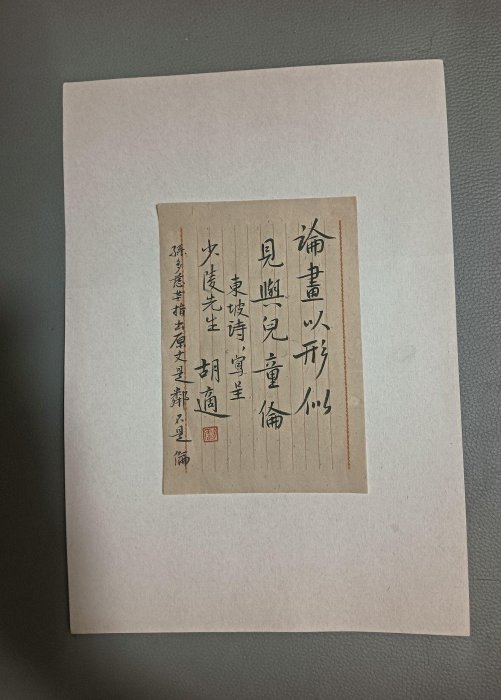 論畫以形似
見與兒童倫
東坡诗，寫呈
少陵先生
胡適
孫多慈女指出原文是鄰不是倫